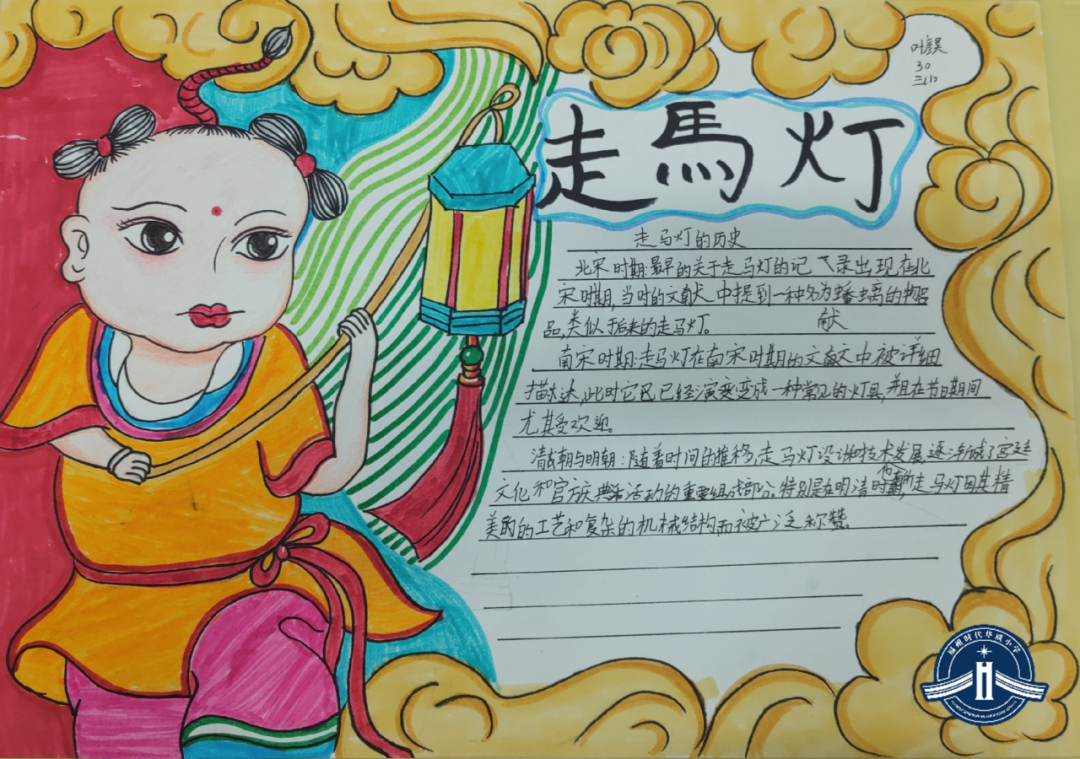 30
三1
走馬灯
走马灯的历史
北宋时期:最早的关于走马灯的记录出现在北
宋时期,当时的文献中提到一种名为蟠螭的物
品,类似于后来的走马灯。
献
南宋时期:走马灯在南宋时期的文献中被详细
描述,此时它已经演变成一种常见的灯具,并且在节日期间
尤其受欢迎。
清朝与明朝:随着时间的推移,走马灯设计和技术发展逐渐成了宫廷
文化和官方庆典活动的重要组成部分,特别是在明清时期,走马灯因其精
美的工艺和复杂的机械结构而被广泛称赞。
福州时代华威小学